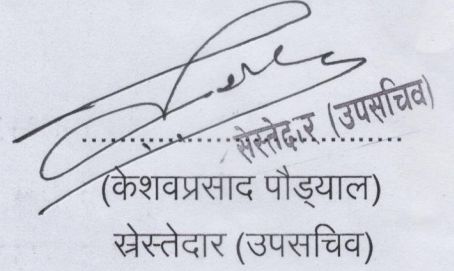 सेस्तेदार (उपसचिव)
(केशवप्रसाद पौड्याल)
स्रेस्तेदार (उपसचिव)